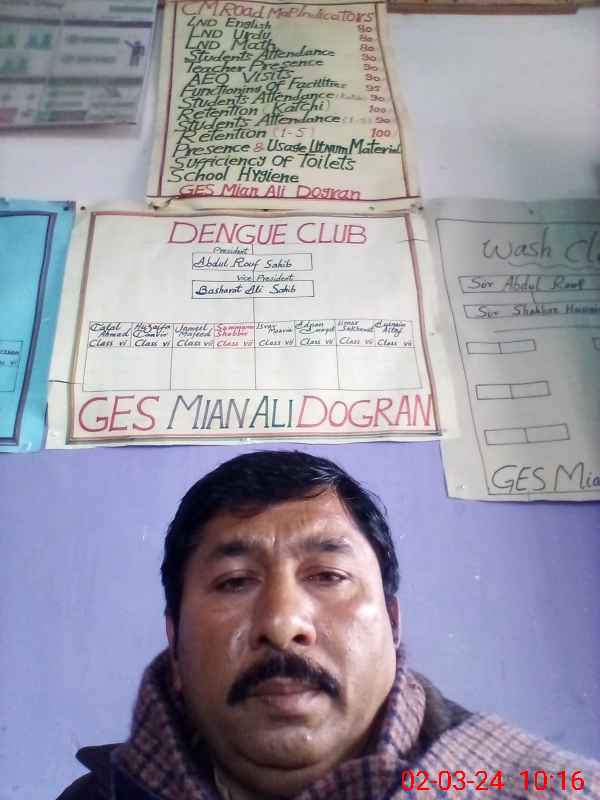 CM Road Map Indicators
LND English 80
LND Urdu 80
LND Math 80
Students Attendance 90
Teacher Presence 90
AEO VISITS 90
Functioning of Facilities 95
Students Attendance (Katchi) 90
Retention (Katchi) 100
Students Attendance (1-5) 90
Retention (1-5) 100
Presence & Usage LitNum Material
Sufficiency Of Toilets
School Hygiene
GES Mian Ali Dogran
DENGUE CLUB
President
Abdul Rouf Sahib
Vice President
Basharat Ali Sahib
Talal Ahmad Class vii
Huzaifa Class vi
Jameel Majeed Class vii
Class vii
Class vi
Adnan Class vi
Class vi
Class vii
GES MIAN ALI DOGRAN
Wash Cl
Sir Abdul Rouf
Sir Shahbaz
GES Mia
02-03-24 10:16